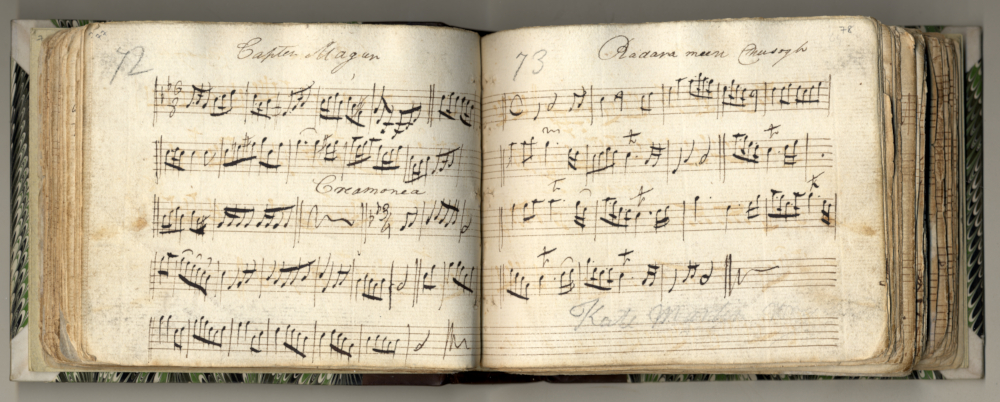 72
Capten Magan
Creamonea
73
78
Radara meen Chusogh
Kate Martin